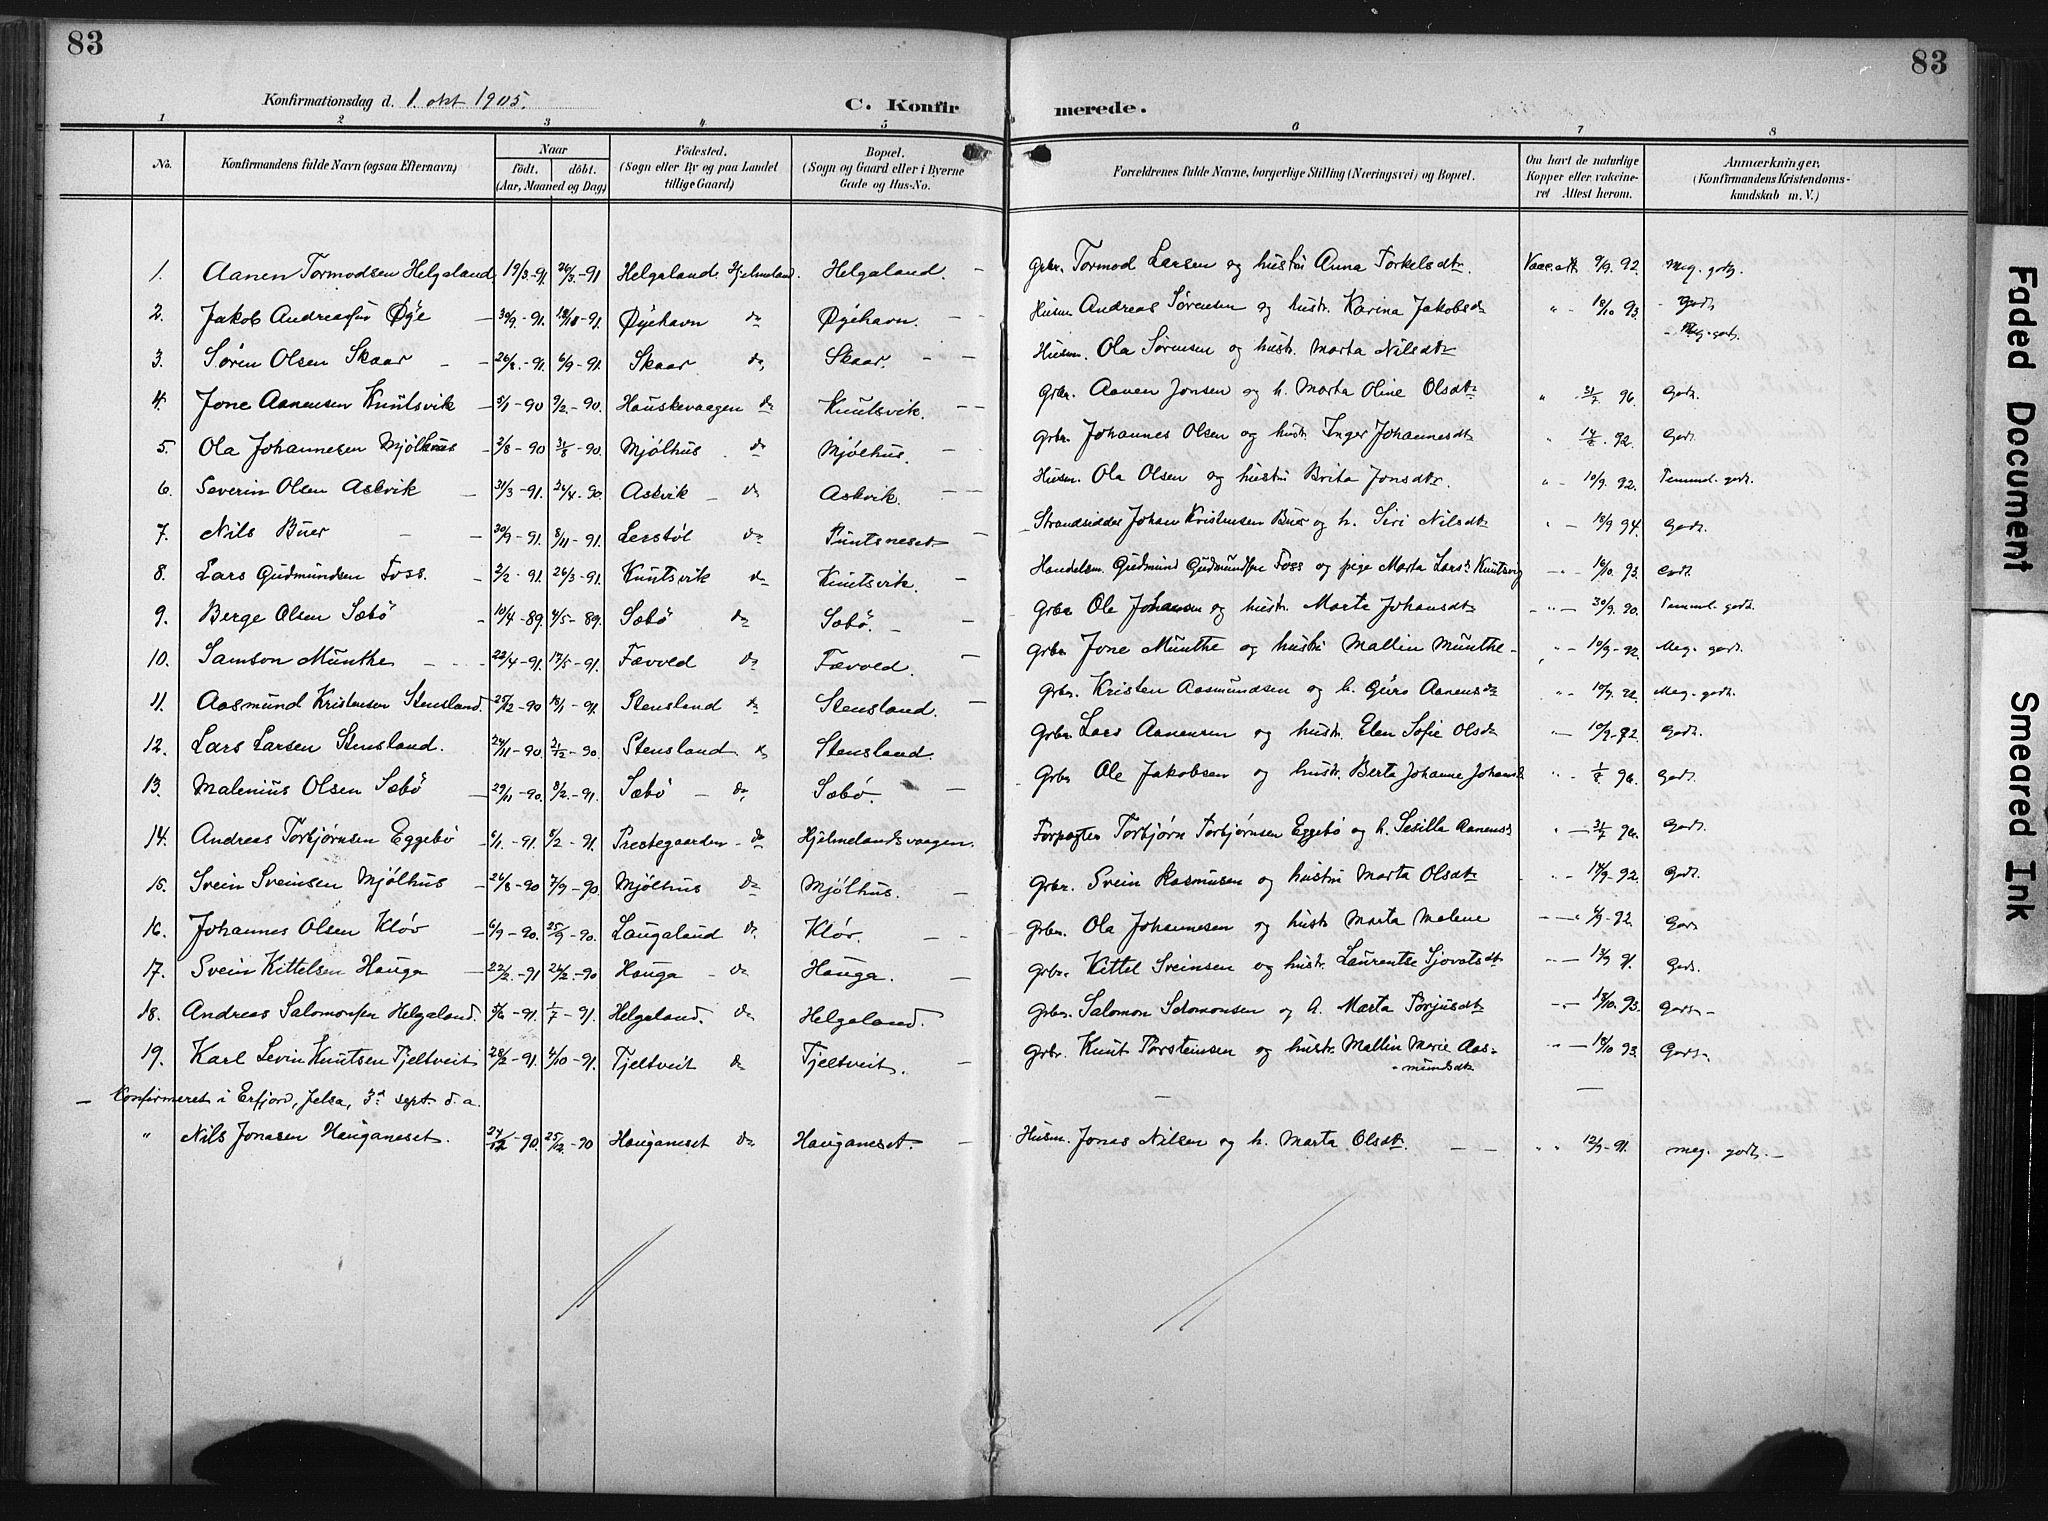 83
83
Konfirmationsdag d. 1. okt 1905.
C. Konfirmerede.
1 2 3 4 5 6 7 8
No.
Konfirmandens fulde Navn (ogsaa Efternavn)
Naar
født. døbt.
(Aar, Maaned og Dag)
Fødested.
(Sogn eller By og paa Landet
tillige Gaard)
Bopæl.
(Sogn og Gaard eller i Byerne
Gade og Hus-No.
Forældrenes fulde Navne, borgerlige Stilling (Næringsvei) og Bopæl.
Om havt de naturlige
Kopper eller vakcine-
ret Attest herom.
Anmærkninger,
(Konfirmandens Kristendoms-
kundskab m. V.)
1. Aanen Tormodsen Helgaland 19/3-91 26/3-91 Helgaland Hjelmeland. Helgaland. Grbr. Tormod Larsen og hustru Anna Torkelsdtr. Vacc.att. 9/9. 92. Meg. godt.
2. Jakob Andreassen Øye 30/9-91. 18/10-91. Øyehavn do Øyehavn. Husm. Andreas Sørensen og hustr. Karina Jakobsdtr " 18/10 93. Godt
3. Søren Olsen Skaar 26/8-91. 6/9-91. Skaar do Skaar. Husm. Ola Sørensen og hustr. Marta Nilsdtr Meg. godt.
4. Jone Aanensen Knutsvik 5/1-90 9/2-90. Hauskevaagen do Knutsvik. Grbr. Aanen Jonsen og h. Marta Oline Olsdtr " 31/7 96. Godt.
5. Ola Johannesen Mjølhus 2/8-90 31/8-90. Mjølhus do Mjølhus. Grbr. Johannes Olsen og hustr. Inger Johannesdtr " 92. Godt
6. Severin Olsen Askvik 31/3-91. 26/4-90. Askvik do Askvik. Husm. Ola Olsen og hustru Brita Jonsdtr. " 10/9. 92. Temmel. godt.
7. Nils Buer 30/9-91. 8/11-91. Lerstøl do Puntsneset Strandsidder Johan Kristensen Buer og h. Siri Nilsdtr " 18/9 94. Godt.
8. Lars Gudmundsen Foss. 2/2-91. 26/3-91. Knutsvik do Knutsvik. Handelsm. Gudmund Gudmundsen Foss og pige Marta Larsdtr Knutsvig " 16/10. 93. Godt.
9. Berge Olsen Sæbø 10/4-89. 4/5-89. Sæbø do Sæbø. Grbr. Ole Johansen og hustr. Marte Johansdtr " 30/9. 90. Temmel. godt.
10. Samson Munthe 22/4-91. 17/5-91. Fævold do Fævold. Grbr. Jone Munthe og hustru Mallin Munthe " 10/9-92. Meg. godt.
11. Aasmund Kristensen Stensland. 25/12-90 18/1-91. Stensland do Stensland. Grbr. Kristen Aasmundsen og h. Guro Aanensdtr " 10/9. 92. Meg. godt.
12. Lars Larsen Stensland. 24/11-90. 21/12-90. Stensland do Stensland. Grbr. Lars Aanensen og hustr. Elen Sofie Olsdtr " 10/9-92. Godt.
13. Malenius Olsen Sæbø 29/11-90. 8/2-91. Sæbø do Sæbø. Grbr. Ole Jakobsen og hustr. Berta Johanne Johansd " 1/8 96. Godt.
14. Andreas Torbjørnsen Eggebø 6/1-91. 8/2-91. Prestegaarden do Hjelmelandsvaagen. Forpagter Torbjørn Torbjørnsen Eggebø og h. Sesilla Aanensd " 31/7 96. Godt.
15. Svein Sveinsen Mjølhus 26/8-90 7/9-90. Mjølhus do Mjølhus. Grbr. Svein Rasmusen og hustru Marta Olsdtr " 14/9-92. Godt.
16. Johannes Olsen Kløv 6/9-90. 25/9-90. Laugaland do Kløv. Grbr. Ola Johannesen og hustr. Marta Malene " 6/9-92. Godt
17. Svein Kittelsen Hauga 22/2-91 26/2-90 Hauga do Hauga. Grbr. Kittel Sveinsen og hustr. Laurentse Sjovatsdtr " 13/9 91. Godt.
18. Andreas Salomonsen Helgaland. 5/6-91. 1/7-91. Helgaland. do Helgaland. Grbr. Salomon Salomonsen og h. Marta Torjusdtr " 18/10. 93. Godt
19. Karl Levin Knutsen Tjeltveit 28/2-91. 4/10-91. Tjeltveit do Tjeltveit. Grbr. Knut Torsteinsen og hustr. Mallin Marie Aas-
mundsdtr. " 18/10 93. Godt
Konfirmeret i Erfjord, Jelsa, 3d sept. d. a.
" Nils Jonasen Hauganeset. 24/12-90. 25/12-90 Hauganeset do Hauganeset. Husm. Jonas Nilsen og h. Marta Olsdtr. " 12/9-91. meg. godt.
Faded Document
Smeared Ink